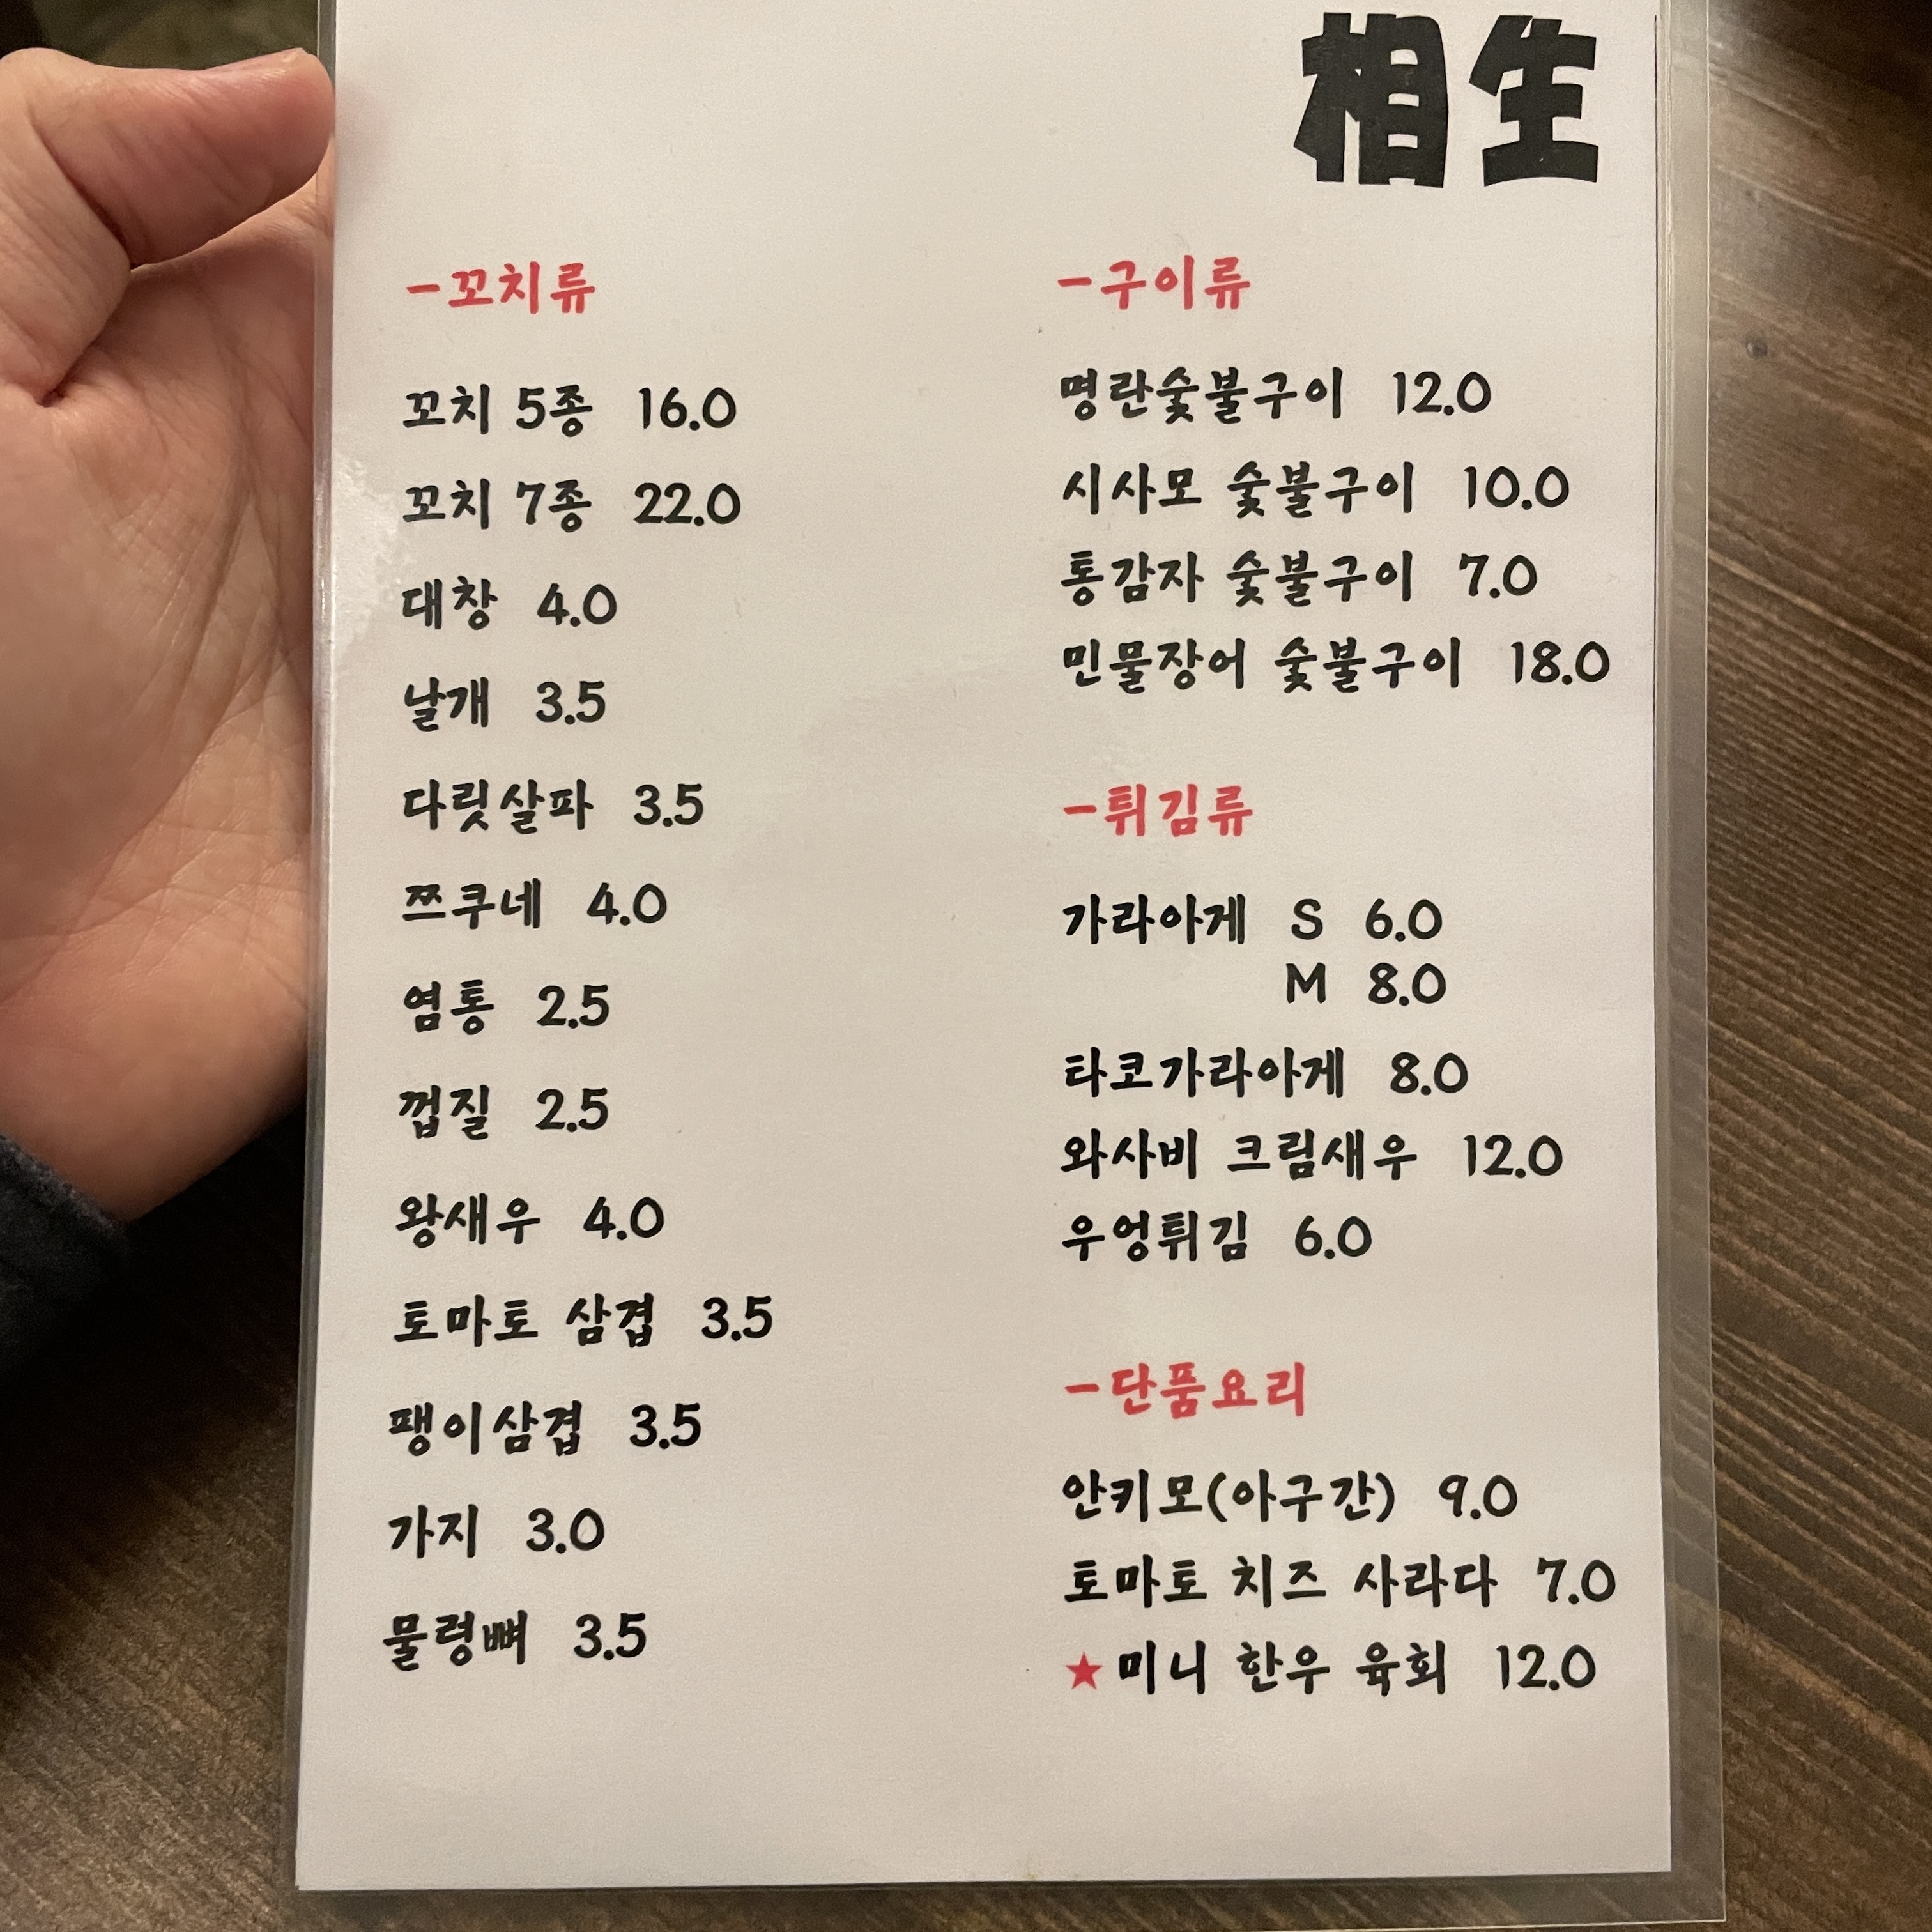 相生
-꼬치류
꼬치 5종 16.0
꼬치 7종 22.0
대창 4.0
날개 3.5
다릿살파 3.5
쯔쿠네 4.0
염통 2.5
껍질 2.5
왕새우 4.0
토마토 삼겹 3.5
팽이삼겹 3.5
가지 3.0
물렁뼈 3.5
-구이류
명란숯불구이 12.0
시사모 숯불구이 10.0
통감자 숯불구이 7.0
민물장어 숯불구이 18.0
-튀김류
가라아게 S 6.0
M 8.0
타코가라아게 8.0
와사비 크림새우 12.0
우엉튀김 6.0
-단품요리
안키모(아구간) 9.0
토마토 치즈 사라다 7.0
★미니 한우 육회 12.0